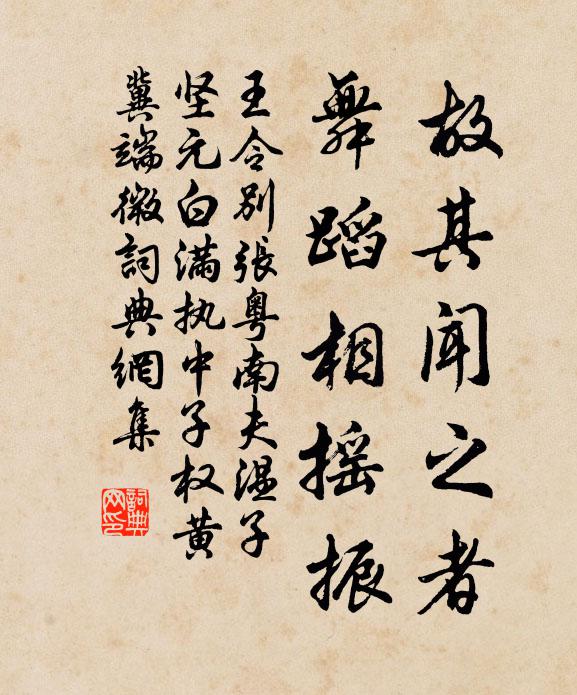 故其闻之者
舞蹈相摇振
王令别張粤南夫湿子
坚元白满执中子权黄
冀端微詞典網集
詞典
网印